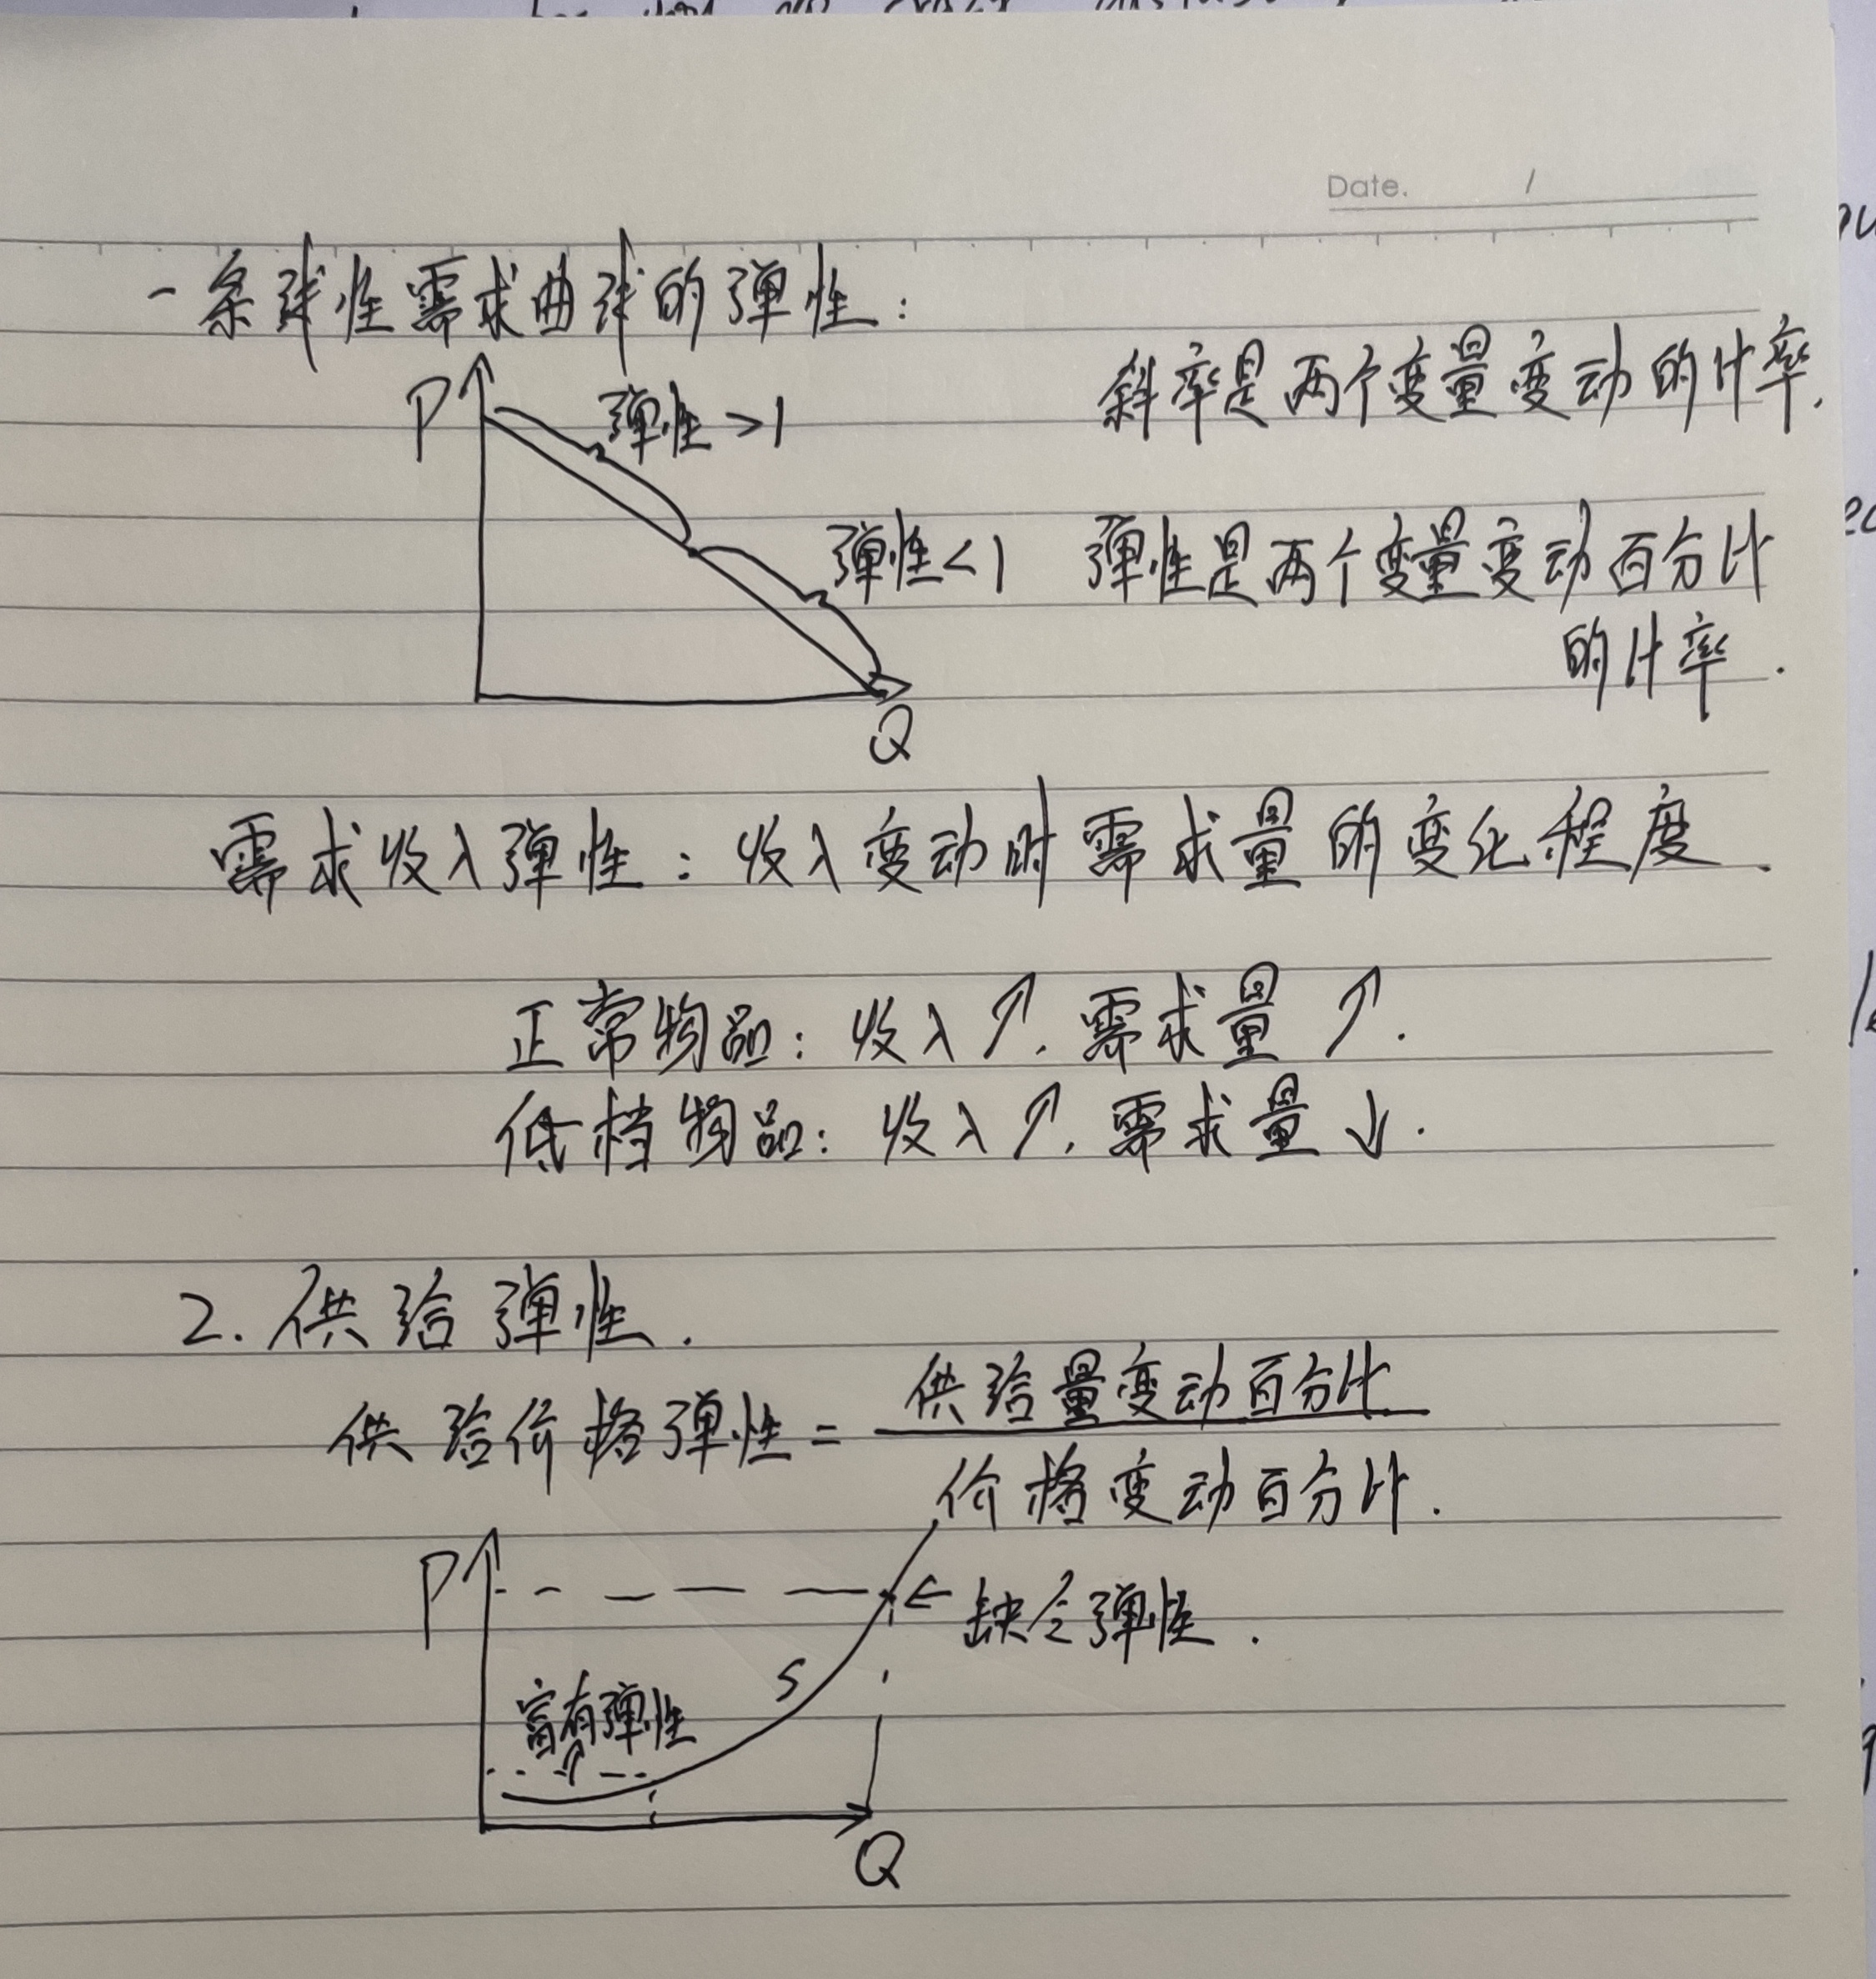 Date. /
一条线性需求曲线的弹性:
P
弹性>1
斜率是两个变量变动的比率.
弹性<1
弹性是两个变量变动百分比
的比率.
Q
需求收入弹性:收入变动时需求量的变化程度.
正常物品:收入↑.需求量↑.
低档物品:收入↑.需求量↓.
2.供给弹性.
供给价格弹性=
供给量变动百分比
价格变动百分比.
P
←缺乏弹性.
S
富有弹性
Q